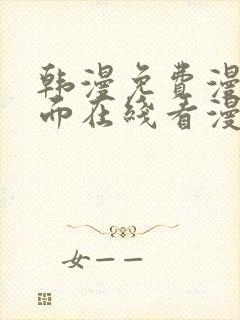 韩漫免费漫
而在线看漫
女一一